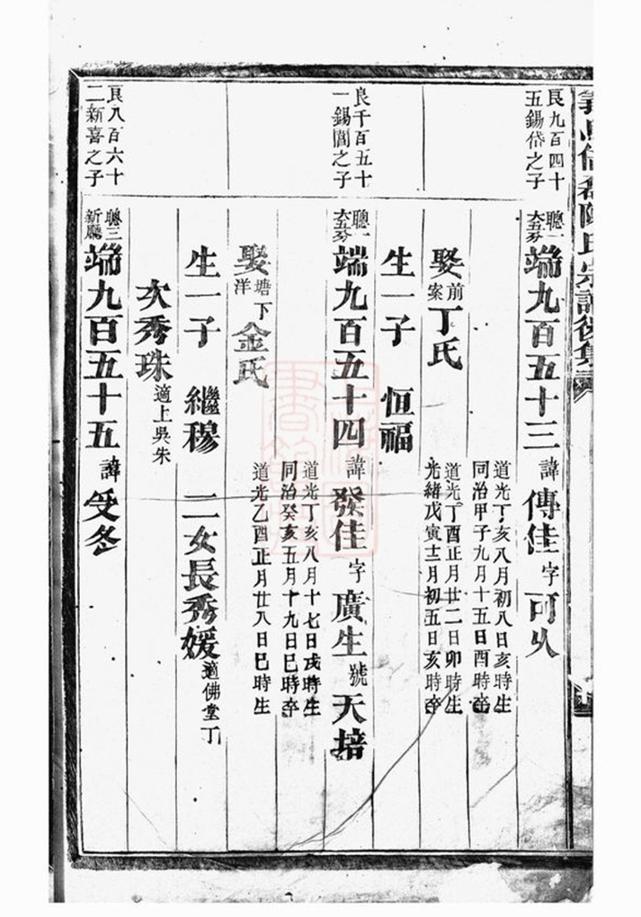 陳氏宗譜後集
艮九百四十
五錫岱之子
聰一
端九百五十三 諱傳佳 字可久
道光丁亥八月初八日亥時生
同治甲子九月十五日酉時卒
娶前案丁氏
道光丁酉正月廿二日卯時生
光緒戊寅十二月初五日亥時卒
生一子 恒福
艮千百五十
一錫誾之子
聰一
端九百五十四 諱發佳 字廣生 號天培
道光丁亥八月十七日戌時生
同治癸亥五月十九日巳時卒
娶塘下洋金氏
道光乙酉正月廿八日巳時生
生一子 繼穆 二女長秀媛 適佛堂丁
次秀珠 適上吳朱
艮八百六十
二新喜之子
聰三
新廳
端九百五十五 諱受冬